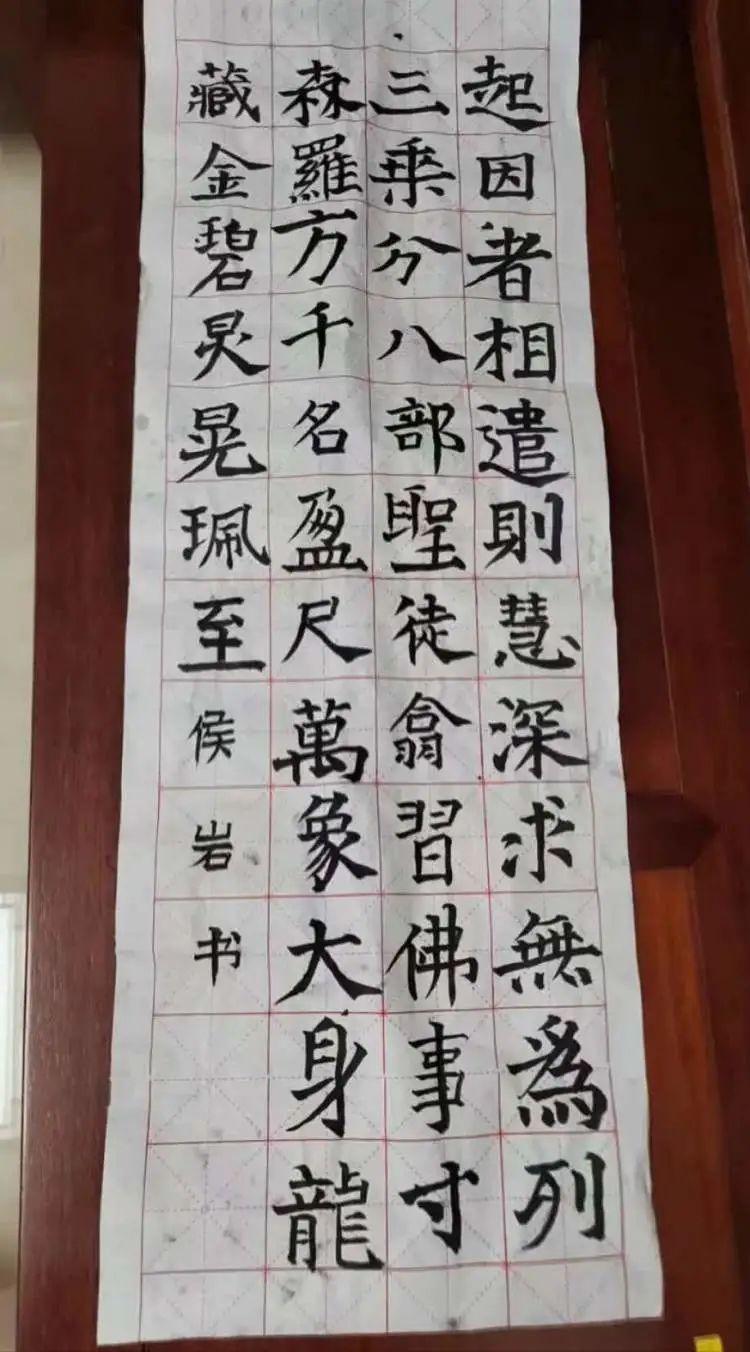 起因者相遣則慧深求無為列
三乘分八部聖徒翕習佛事寸
森羅方千名盈尺萬象大身龍
藏金碧炅晃珮至侯岩书